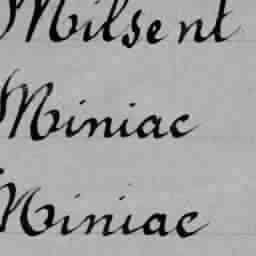 Milsent
Miniac
Miniac